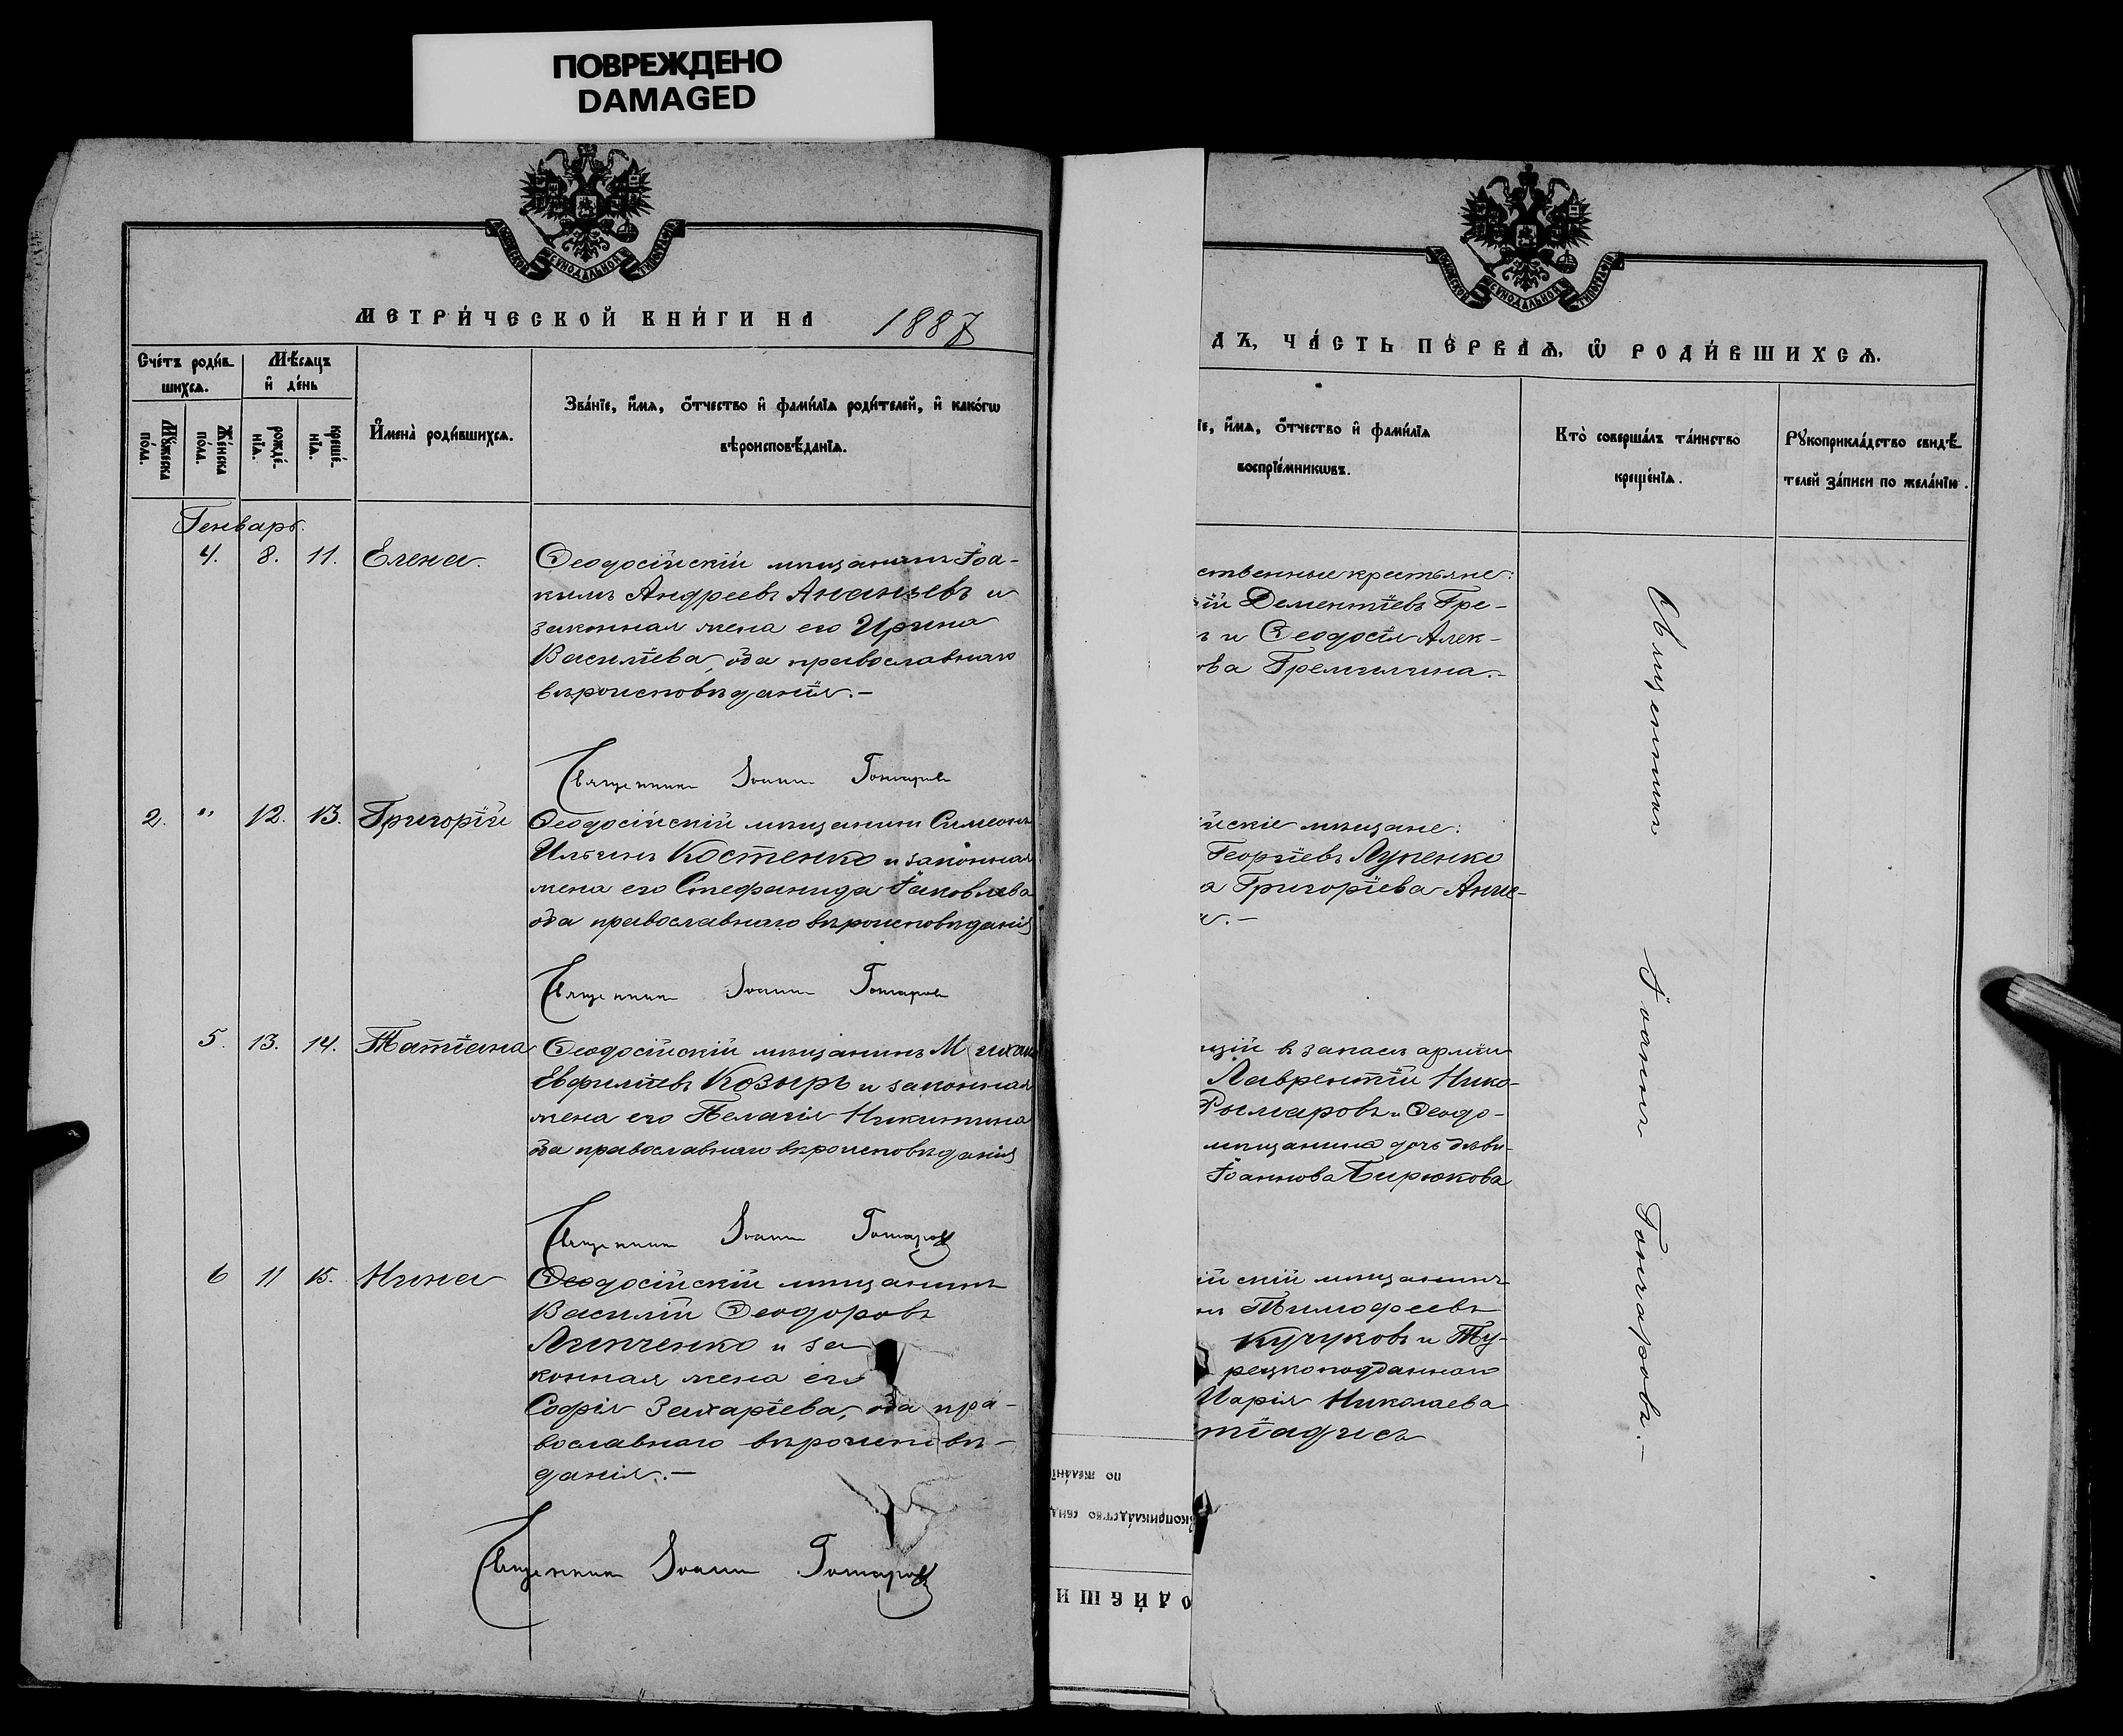 ПОВРЕЖДЕНО
DAMAGED
МЕТРИ́ЧЕСКОЙ КНИ́ГИ НА 1887
Сче́тъ роди́в-
шихсѧ.
Мѣ́сѧцъ
и҆ де́нь
Мꙋ́жеска по́ла.
Же́нска по́ла.
рожде́-
нїѧ.
креще́-
нїѧ.
И҆мена̀ роди́вшихсѧ.
Зва́нїе, и҆́мѧ, ѻ҆́тчество и҆ фами́лїѧ роди́телей, и҆ како́гѡ
вѣроисповѣ́данїѧ.
Генварь.
4. 8. 11. Елена.
Ѳеодосійскій мѣщанинъ Іоа-
кимъ Андреевъ Ананьевъ и
законная жена его Ирина
Василіева, оба православнаго
вѣроисповѣданія.—
Священникъ Іоаннъ Гончаровъ
2. " 12. 13. Григорій
Ѳеодосійскій мѣщанинъ Симеонъ
Ильинъ Костенко и законная
жена его Стефанида Іаковлева
оба православнаго вѣроисповѣданія
Священникъ Іоаннъ Гончаровъ
5. 13. 14. Татіана
Ѳеодосійскій мѣщанинъ Михаилъ
Евфиміевъ Козырь и законная
жена его Пелагія Никитина
оба православнаго вѣроисповѣданія
Священникъ Іоаннъ Гончаровъ
6 11 15. Нина
Ѳеодосійскій мѣщанинъ
Василій Ѳеодоровъ
Липченко и за
конная жена его
Софія Захаріева, оба пра-
вославнаго вѣроисповѣ-
данія.—
Священникъ Іоаннъ Гончаровъ
по жела́нїю
рꙋкоприкла́дство свид
ОДИ́ВШИ
ДЪ, ЧА́СТЬ ПЕ́РВАѦ, Ѡ҆ РОДИ́ВШИХСѦ.
їе, и҆́мѧ, ѻ҆́тчество и҆ фами́лїѧ
воспрїе́мникѡвъ.
Кто̀ соверша́лъ та́инство
креще́нїѧ.
Рꙋкоприкла́дство свидѣ́-
телей за́писи по жела́нїю.
ственные крестьяне:
ій Дементіевъ Гре-
ъ и Ѳеодосія Алек-
ова Гремилина.—
йскіе мѣщане:
Георгіевъ Лупенко
а Григоріева Анге-
щій въ запасѣ арміи
Лаврентій Нико-
Рымаровъ и Ѳеодо-
мѣщанина дочь дѣви-
Іоаннова Бирюкова
ійскій мѣщанинъ
Тимоѳеевъ
Кучуковъ и Ту-
рецкоподданная
Марія Николаева
тіадисъ
Священникъ Іоаннъ Гончаровъ.—